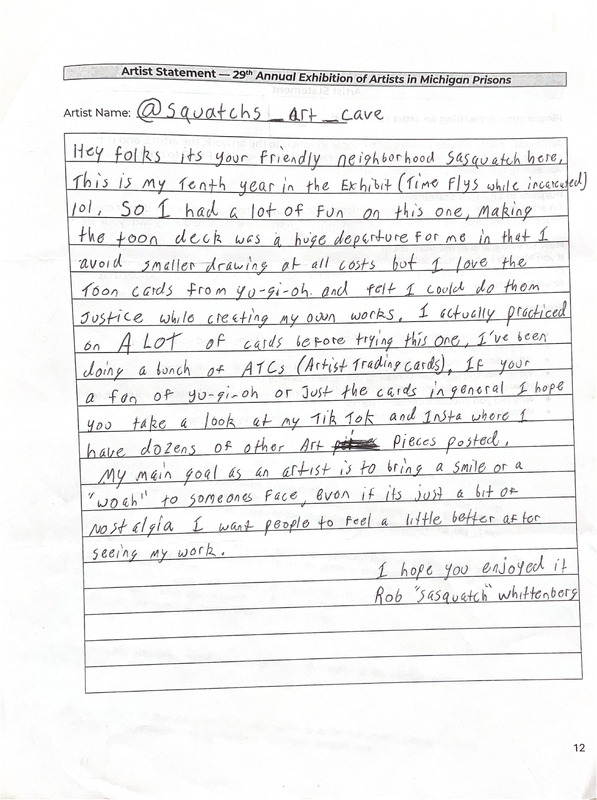 Artist Statement — 29th Annual Exhibition of Artists in Michigan Prisons
Artist Name: @squatchs_Art_cave
Hey folks its your friendly neighborhood Sasquatch here,
This is my Tenth year in the Exhibit (Time Flys while incarcuated)
lol, So I had a lot of fun on this one, Making
the toon deck was a huge departure for me in that I
avoid smaller drawing at all costs but I love the
Toon cards from yu-gi-oh. and felt I could do them
Justice while creating my own works. I actually practiced
on A LOT of cards before trying this one, I've been
doing a bunch of ATCs (Artist Trading cards), If your
a fan of yu-gi-oh or Just the cards in general I hope
you take a look at my Tik Tok and Insta where I
have dozens of other Art Pieces posted.
My main goal as an artist is to bring a smile or a
"woah" to someones face, even if its just a bit of
Nostalgia I want people to feel a little better after
seeing my work.
I hope you enjoyed it
Rob "Sasquatch" Whittenberg
12